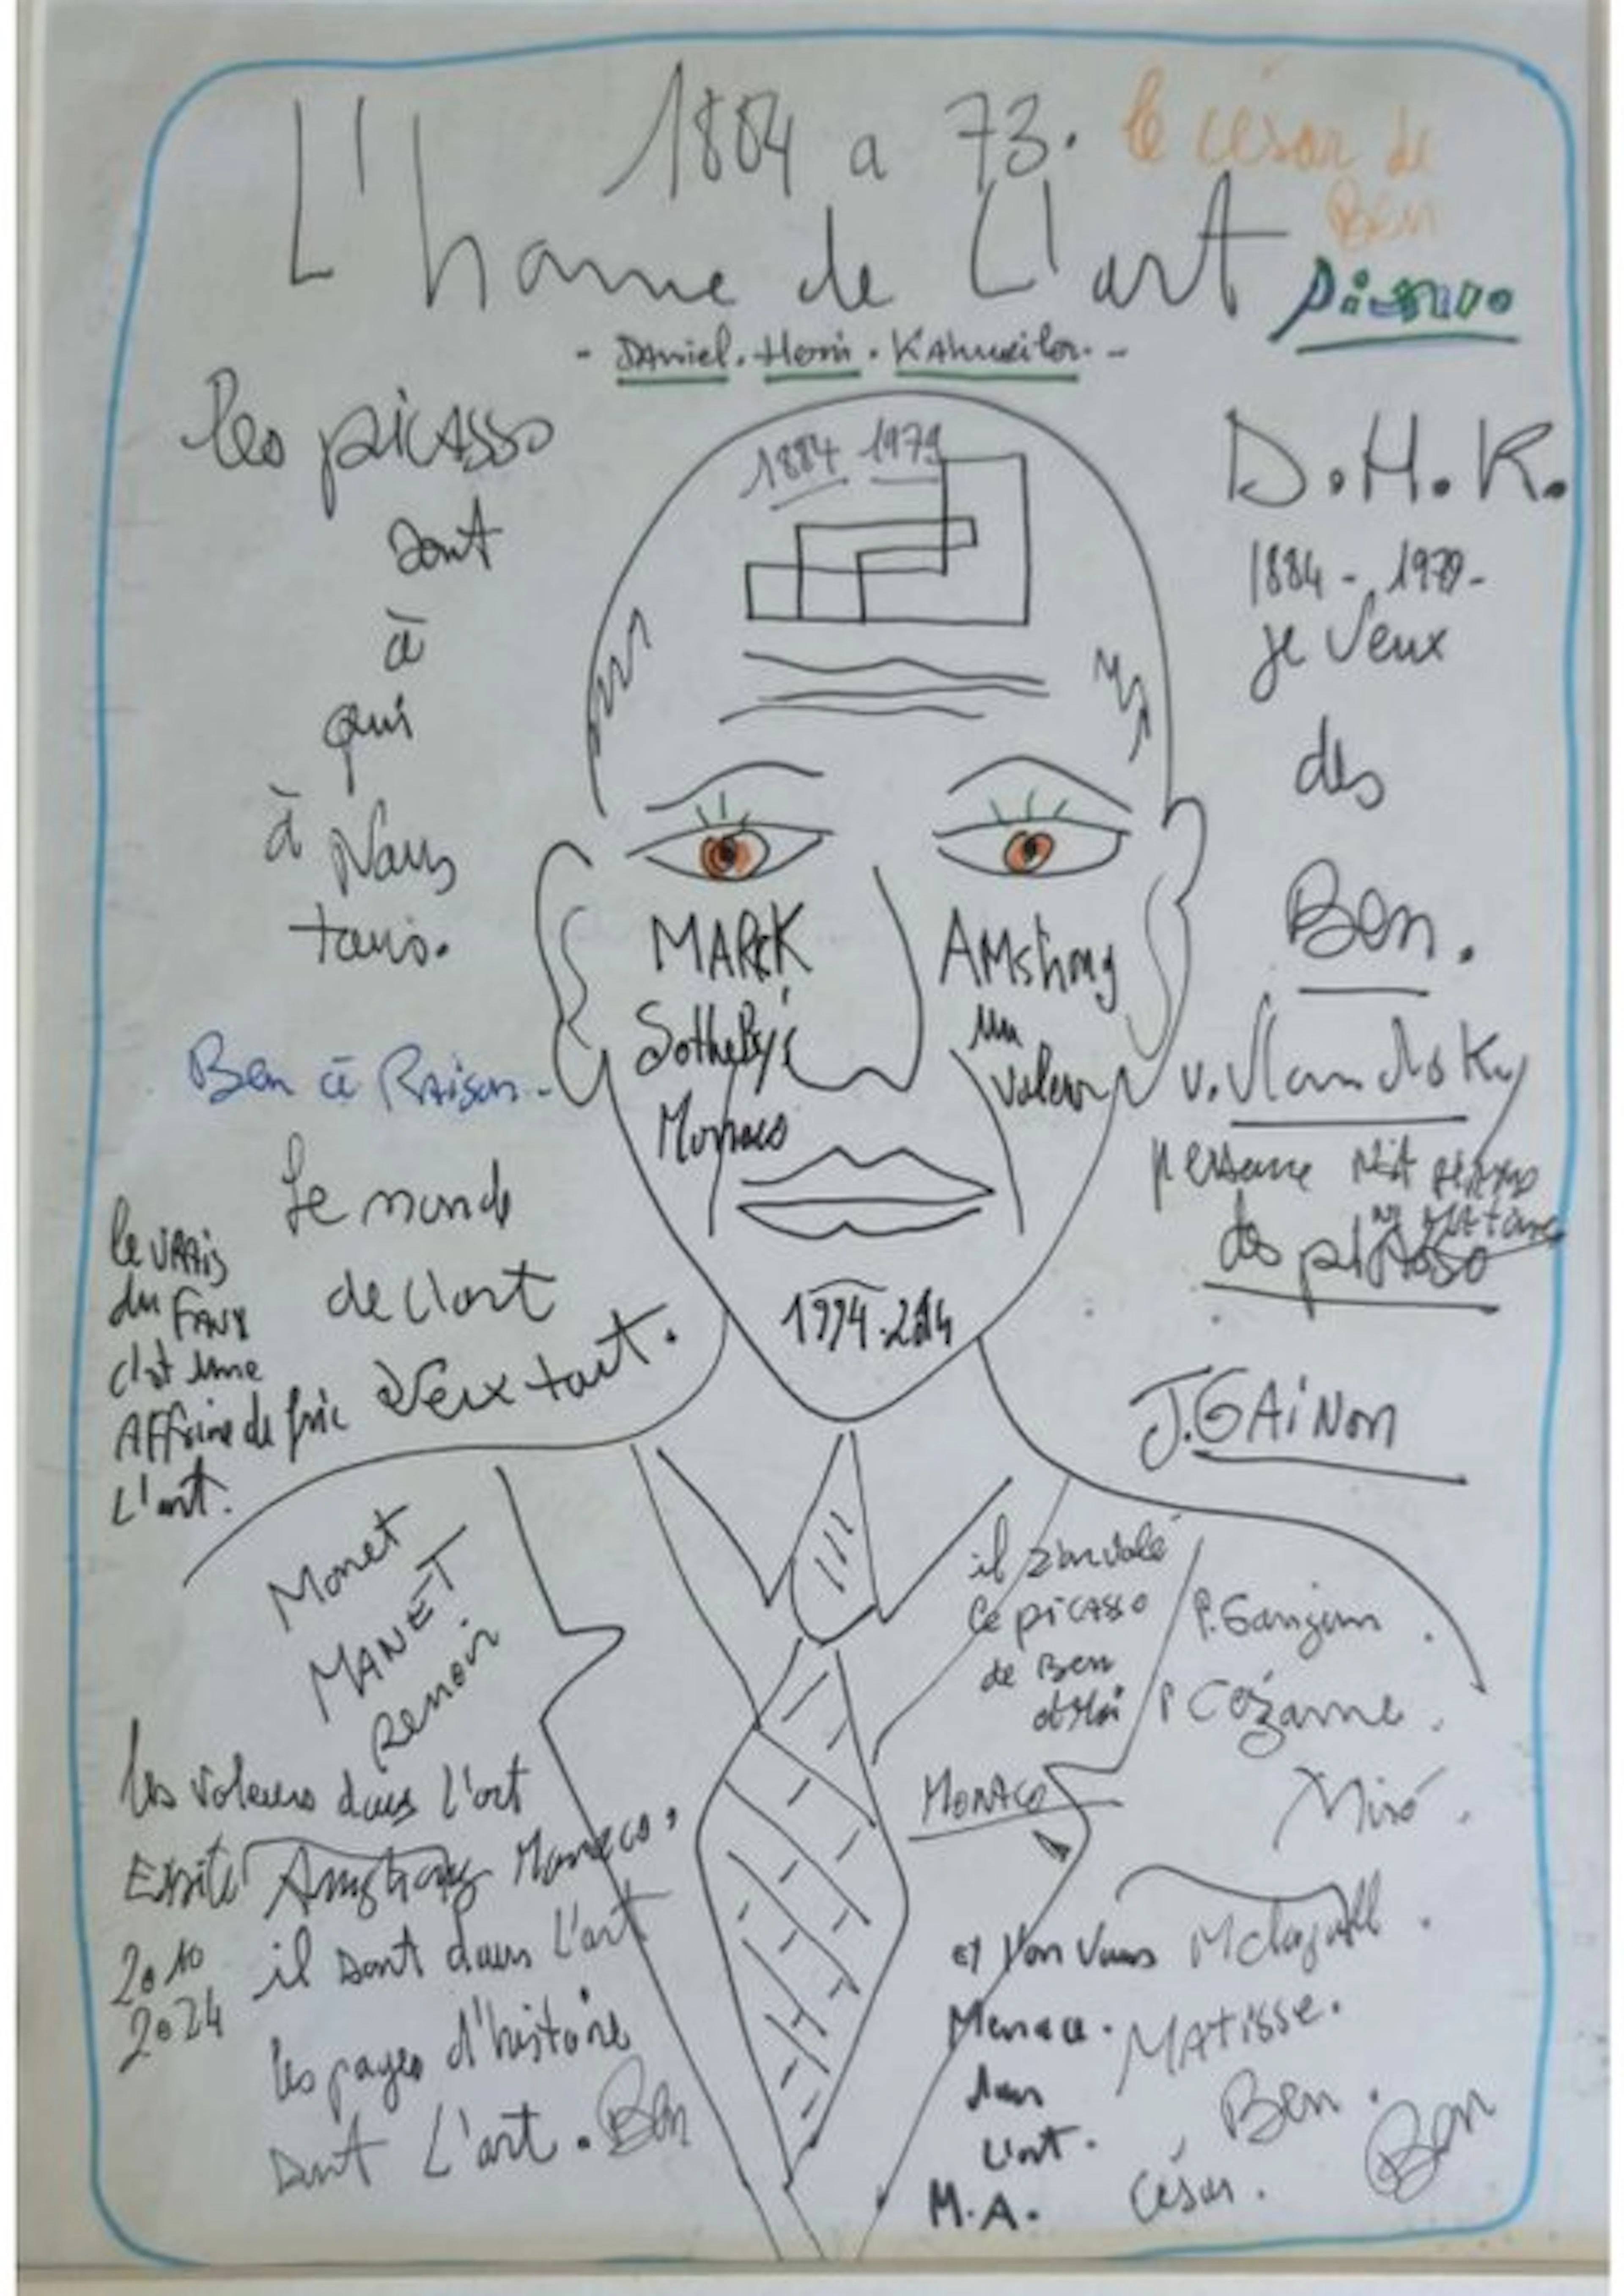 1884 a 73.
le césar de
Ben
L'homme de L'art
- DAniel. Henri. KAhnweiler. -
les picAsso
sont
à
qui
à Nous
tous.
1884 1979
D.H.K.
1884 - 1979 -
je veux
des
Ben.
MARcK
Sotheby's
Monaco
AMstrong
un
voleur
Ben à Raison -
Le monde
de l'art
Veux tout.
le VRAis
du FAux
c'est une
Affaire de fric
L'art.
personne
des picasso
J.GAiNon
Monet
MANET
Renoir
il
ce picAsso
de Ben
et Moi
MonAco
P.Gauguin
P Cézanne.
Miró.
les voleurs dans l'art
Amstrong Monaco,
2010
2024
il sont dans l'art
les pages d'histoire
sont L'art. Ben
Menace.
dans
L'art.
M.A.
MAtisse.
Ben.
César.
Ben